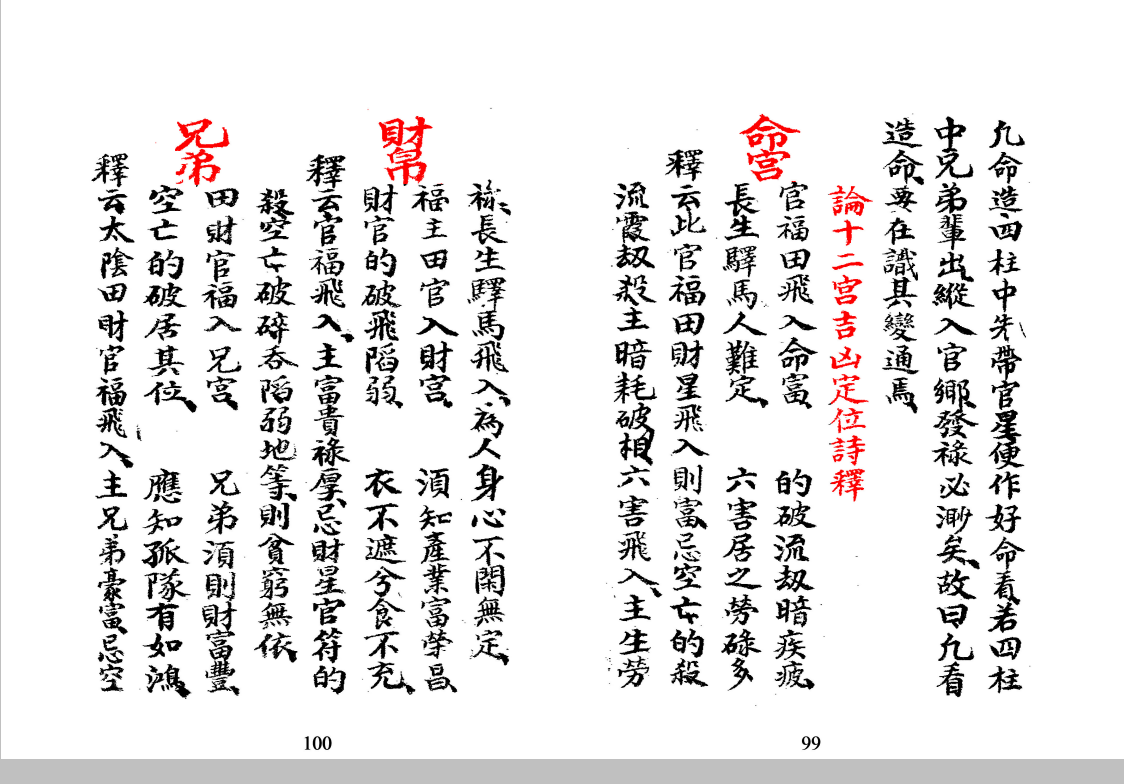 凢命造四柱中先帶官星便作好命看若四柱
中兄弟輩出縱入官鄉發祿必渺矣故曰凢看
造命要在識其變通焉
論十二宮吉凶定位詩釋
命宮
官福田飛入命富 的破流劫暗疾疲
長生驛馬人難定 六害居之勞碌多
釋云此官福田財星飛入則富忌空亡的殺
流霞劫殺主暗耗破相六害飛入主生勞
祿長生驛馬飛入為人身心不閑無定
財帛
福主田官入財宮 須知產業富榮昌
財官的破飛陷弱 衣不遮兮食不充
釋云官福飛入主富貴祿厚忌財星官符的
殺空亡破碎吞陷弱地等則貧窮無依
兄弟
田財官福入兄宮 兄弟須則財富豐
空亡的破居其位 應知孤隊有如鴻
釋云太陰田財官福飛入主兄弟豪富忌空
100
99